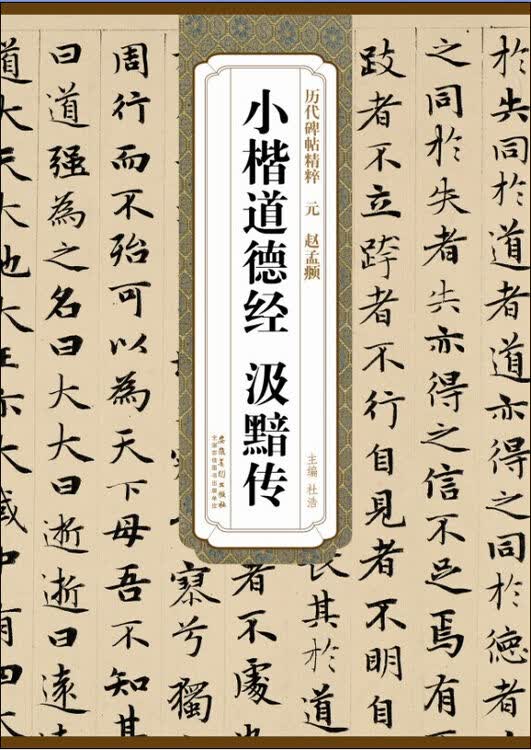 於失同於道者道亦得之同於德者
之同於失者失亦得之信不足焉有
跂者不立跨者不行自見者不明自
長其於道
者不處也
寥兮獨
周行而不殆可以為天下母吾不知其
曰道強為之名曰大大曰逝逝曰遠
道大天大地大王亦大域中有四大
历代碑帖精粹 元 赵孟頫
小楷道德经 汲黯传
主编 杜浩
安徽美术出版社
全国百佳图书出版单位